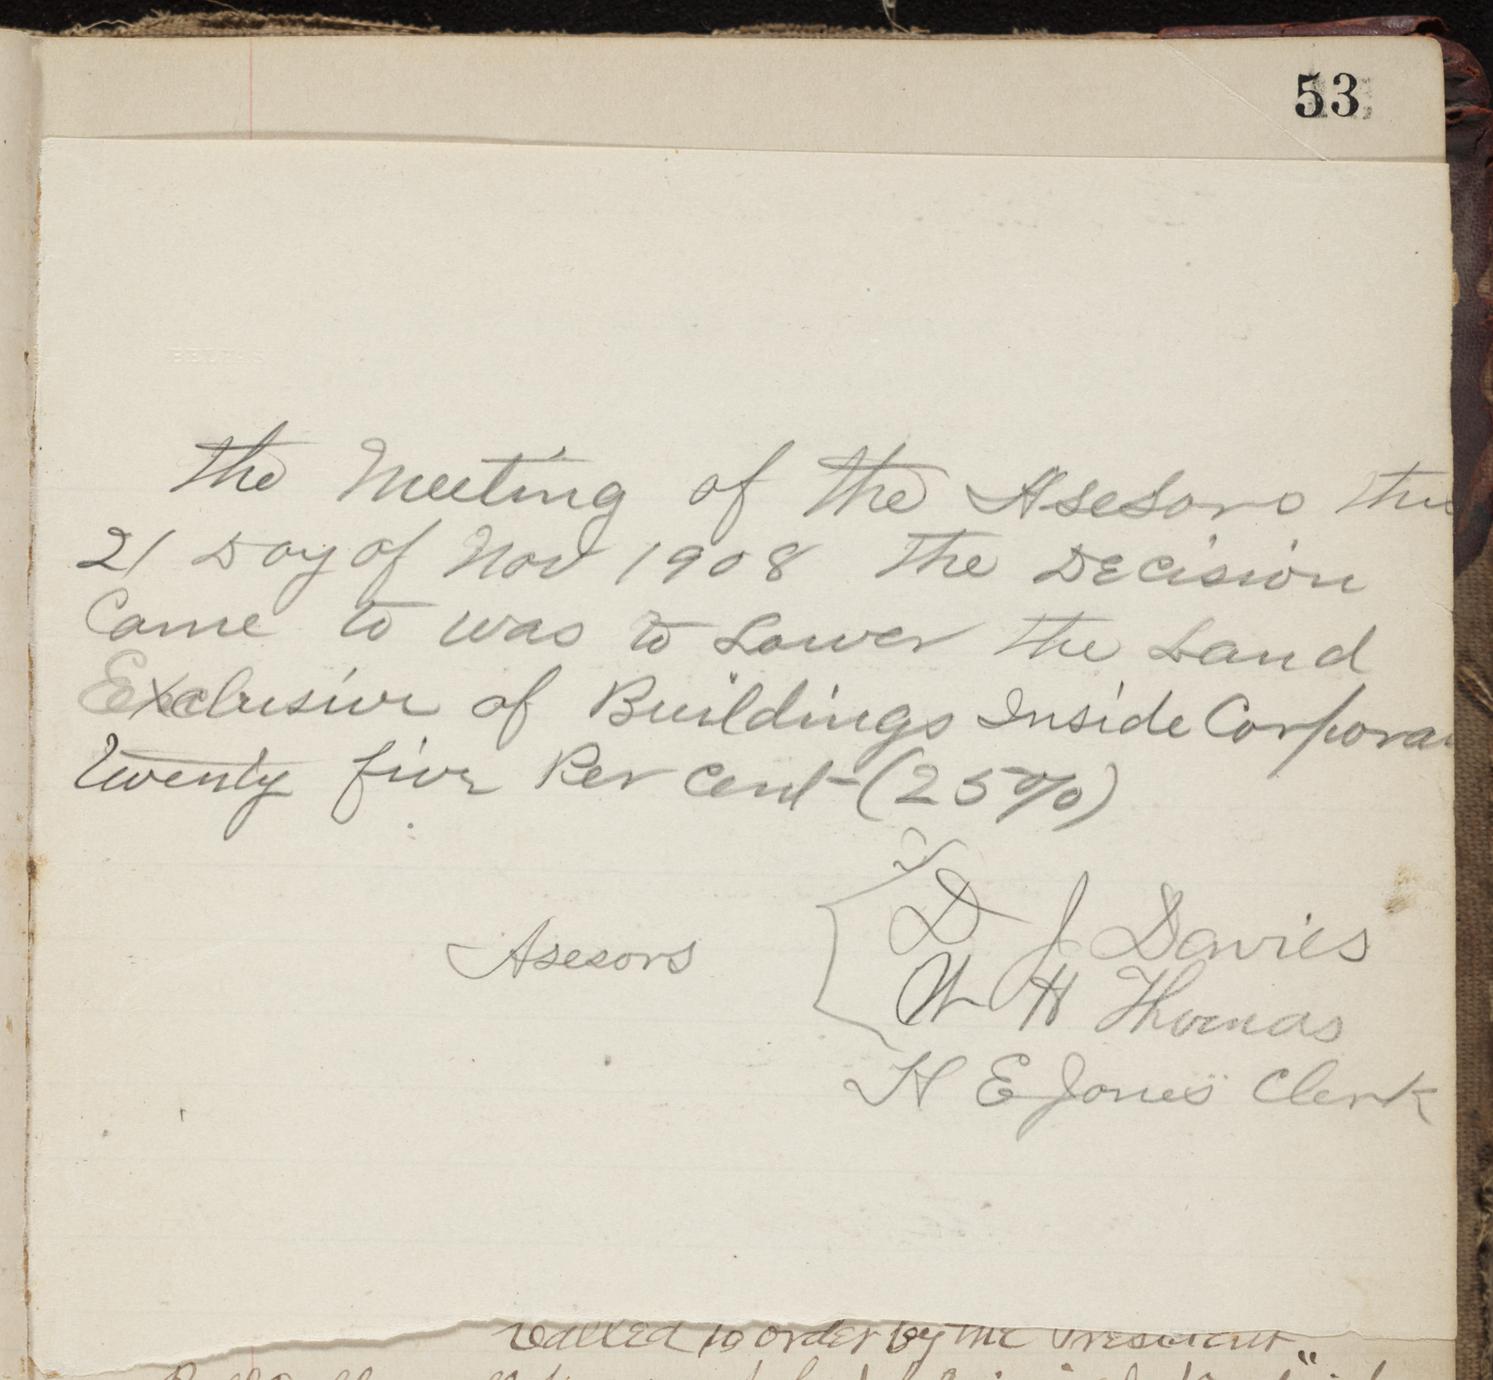 53
the Meeting of the Asesors this
21 Day of Nov 1908 The Decision
Came to was to Lower the Land
Exclusive of Buildings Inside Corpora
Twenty five Per cent (25%)
D J Davies
Asesors
W H Thomas
H E Jones Clerk
Called to order by the President